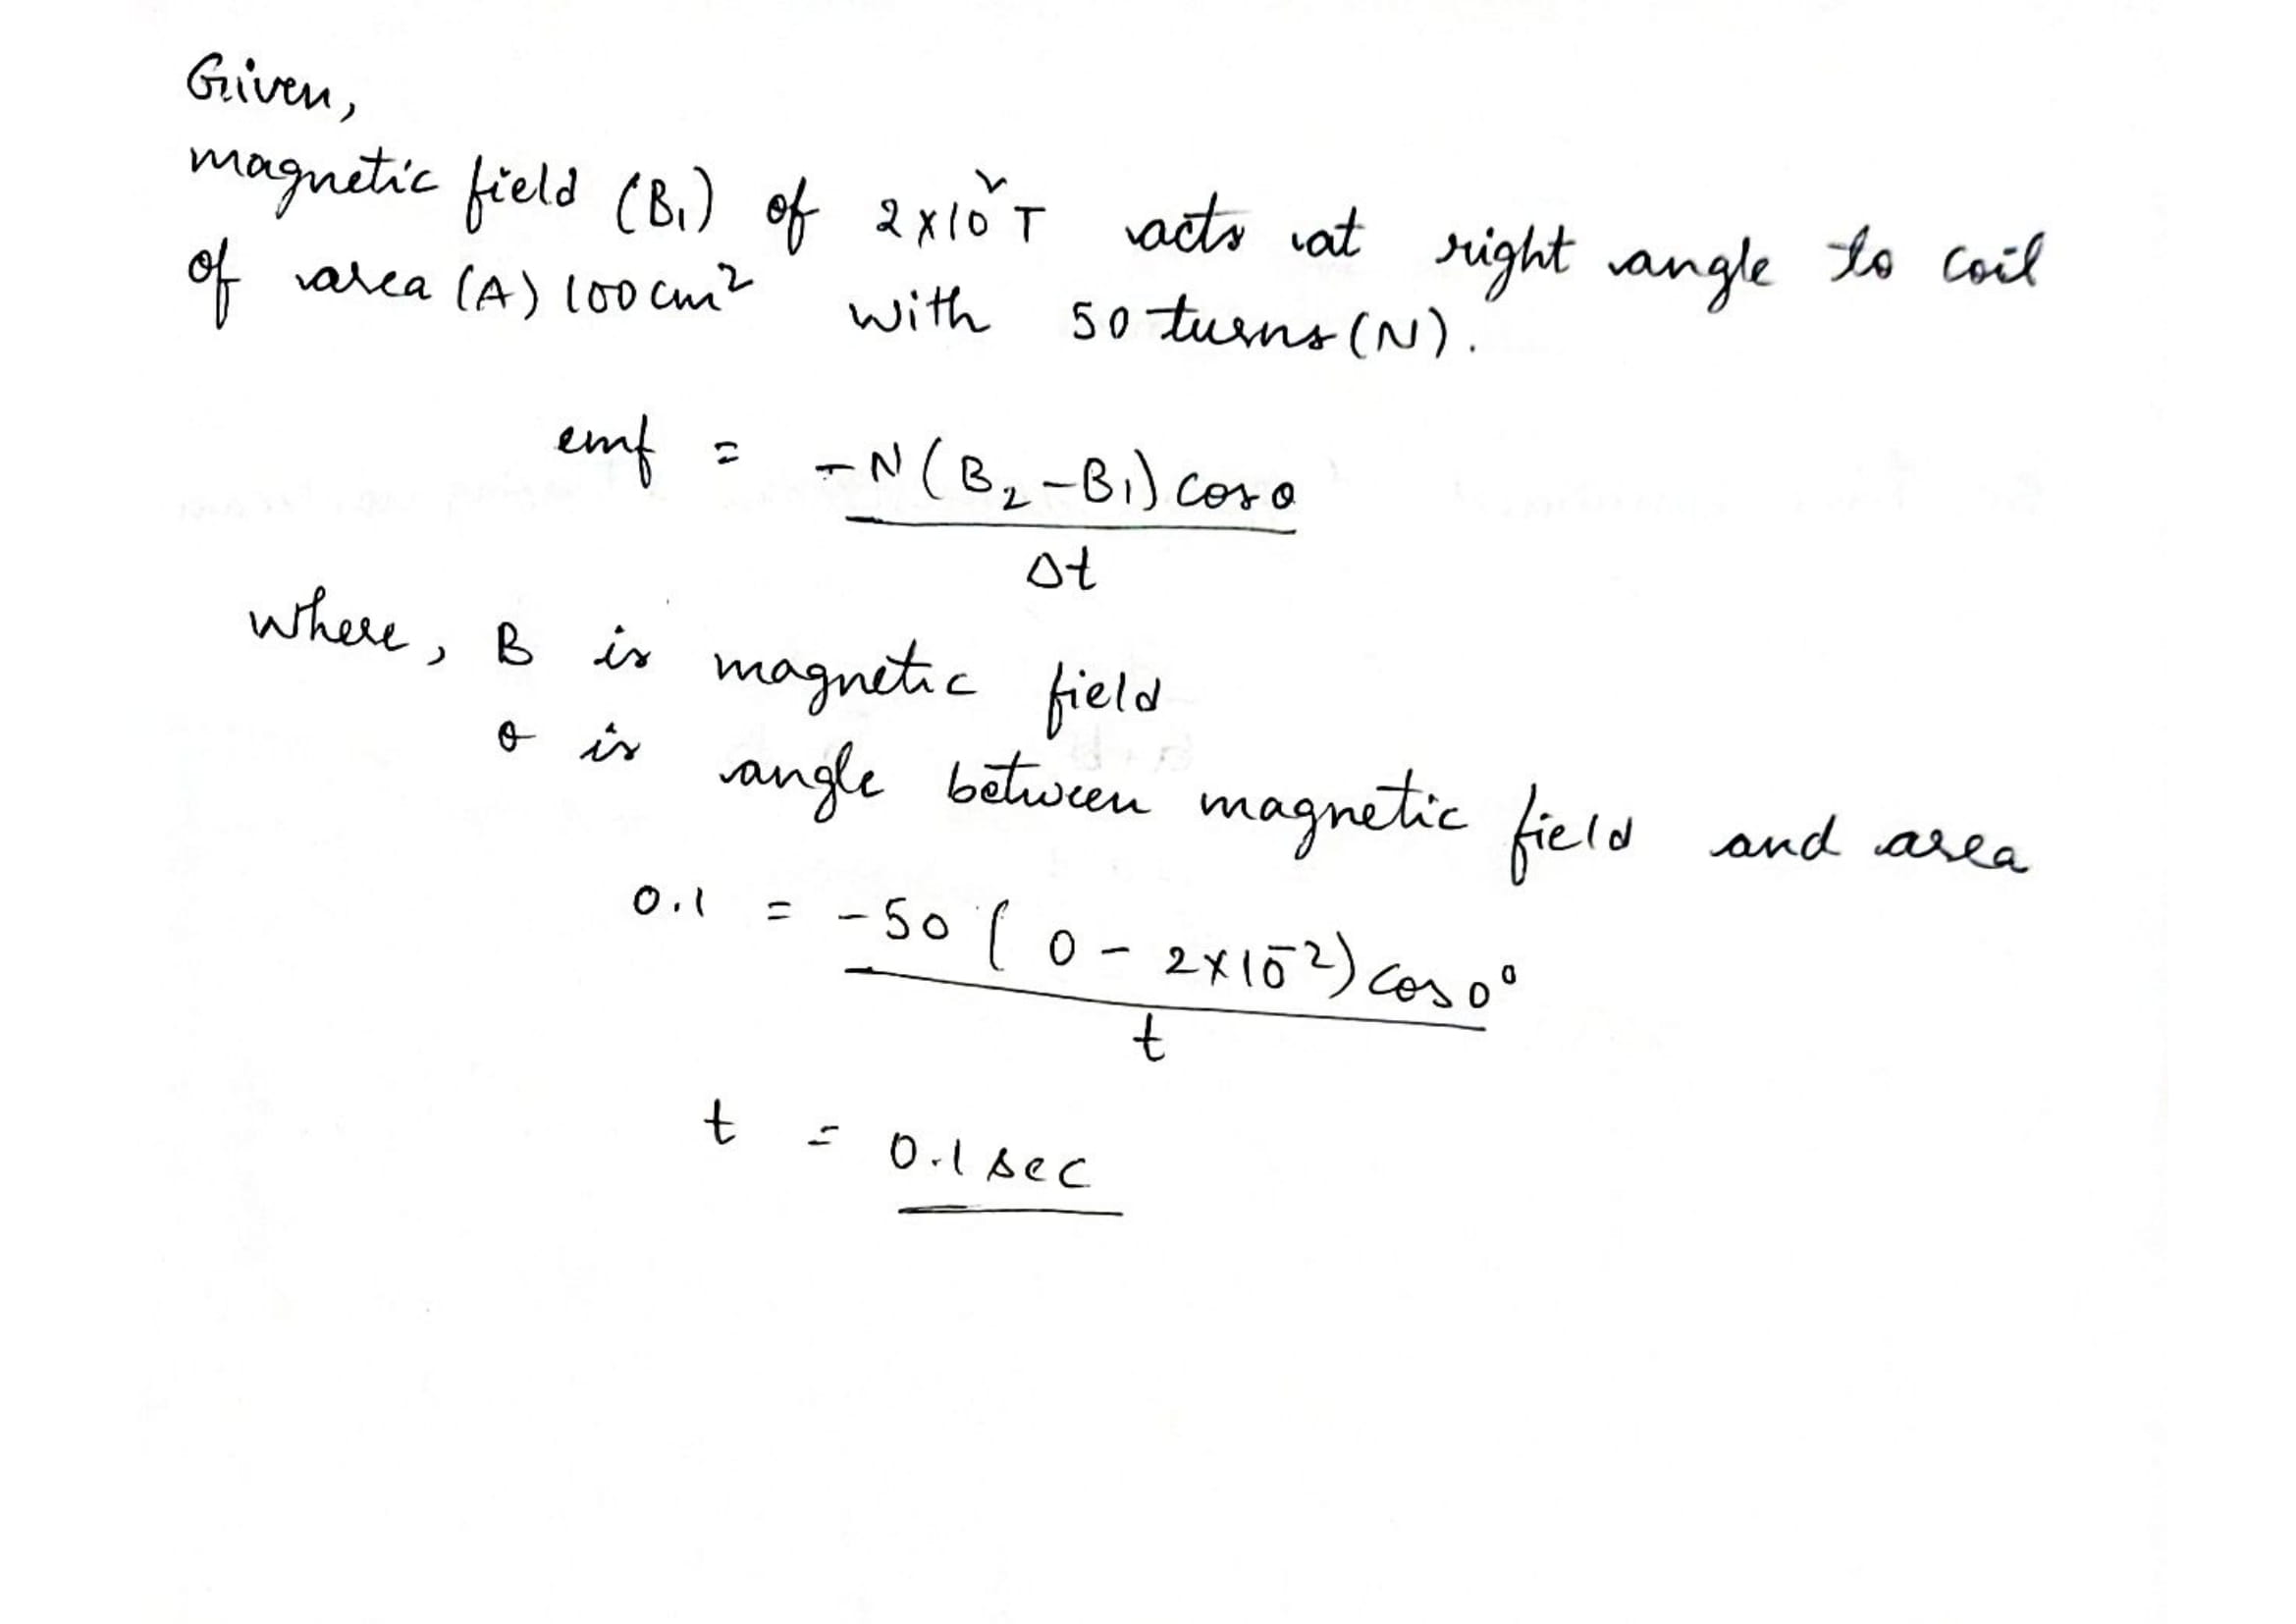 Given,
magnetic field (B₁) of 2×10² T acts at right angle to coil
of area (A) 100 cm² with 50 turns (N).
emf = -N(B₂-B₁) cosθ
Δt
where, B is magnetic field
θ is angle between magnetic field and area
0.1 = -50 ( 0 - 2×10⁻²) cos 0°
t
t = 0.1 sec